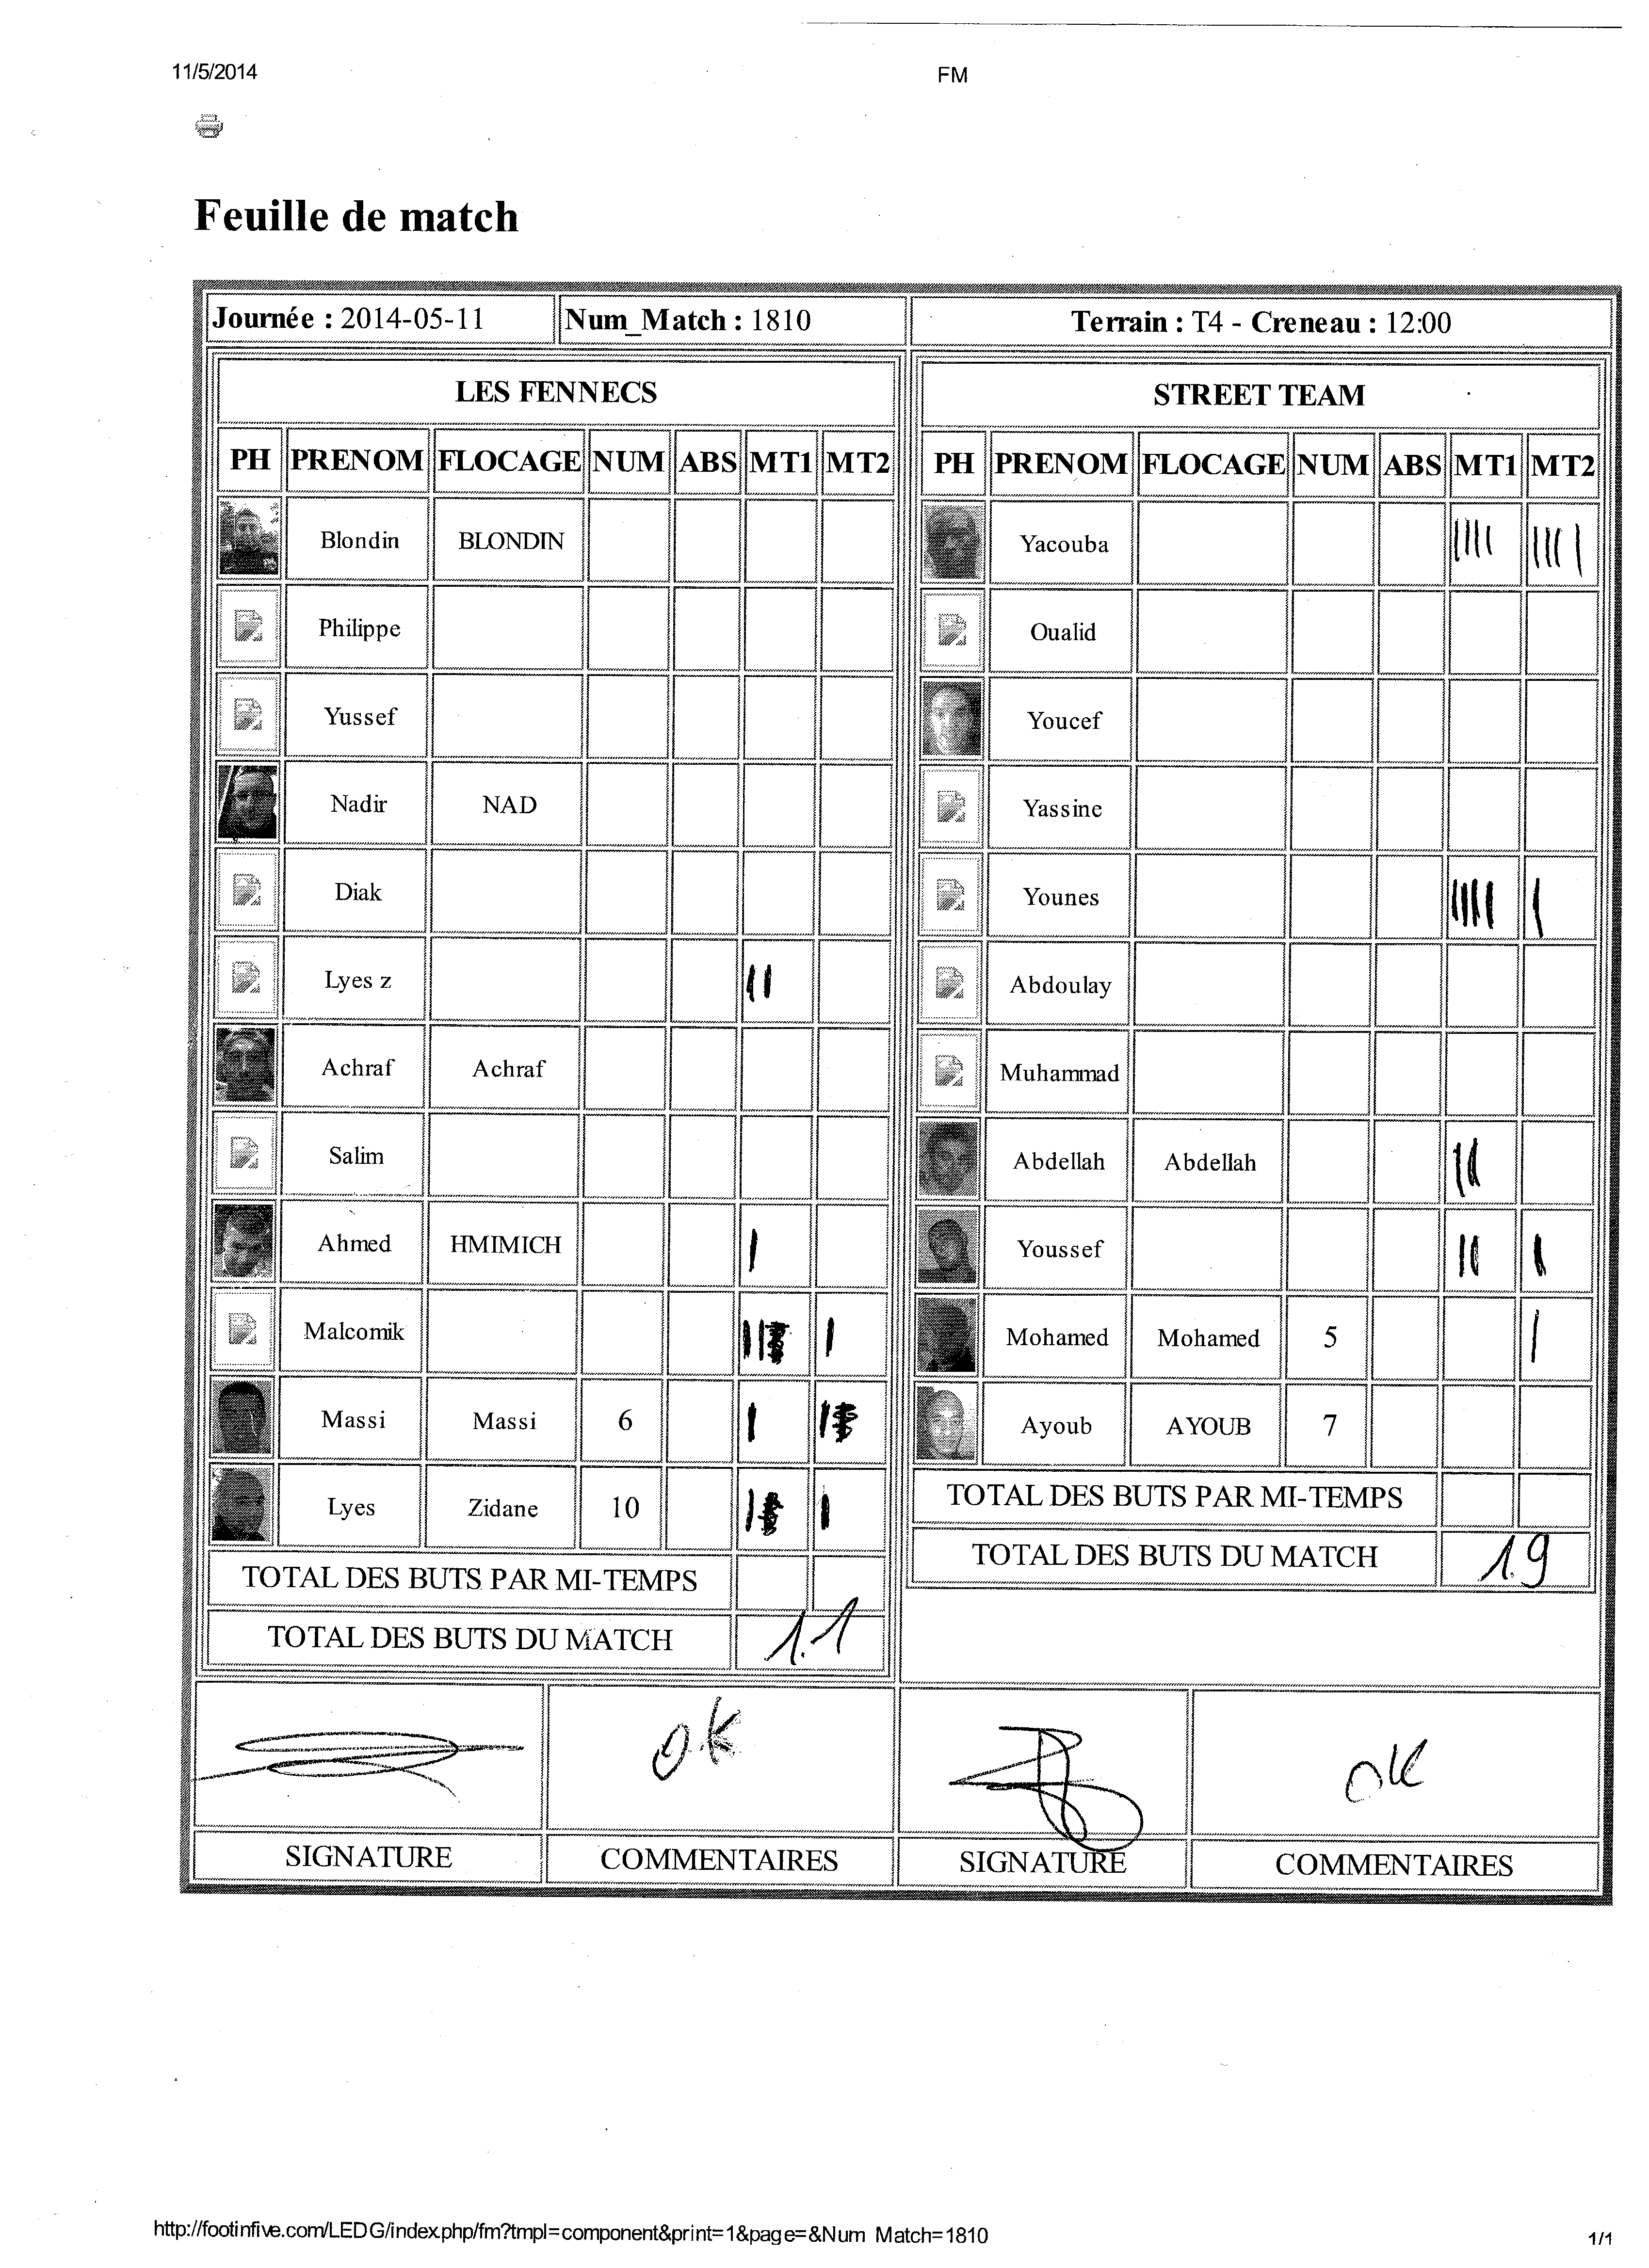 11/5/2014 FM
Feuille de match
Journée : 2014-05-11 Num_Match : 1810 Terrain : T4 - Creneau : 12:00
LES FENNECS
PH PRENOM FLOCAGE NUM ABS MT1 MT2
Blondin BLONDIN
Philippe
Yussef
Nadir NAD
Diak
Lyes z ||
Achraf Achraf
Salim
Ahmed HMIMICH |
Malcomik || |
Massi Massi 6 | |
Lyes Zidane 10 | |
TOTAL DES BUTS PAR MI-TEMPS
TOTAL DES BUTS DU MATCH 1.1
STREET TEAM
PH PRENOM FLOCAGE NUM ABS MT1 MT2
Yacouba |||| ||||
Oualid
Youcef
Yassine
Younes |||| |
Abdoulay
Muhammad
Abdellah Abdellah ||
Youssef || |
Mohamed Mohamed 5 |
Ayoub AYOUB 7
TOTAL DES BUTS PAR MI-TEMPS
TOTAL DES BUTS DU MATCH 1.9
OK OK
SIGNATURE COMMENTAIRES SIGNATURE COMMENTAIRES
http://footinfive.com/LEDG/index.php/fm?tmpl=component&print=1&page=&Num_Match=1810 1/1